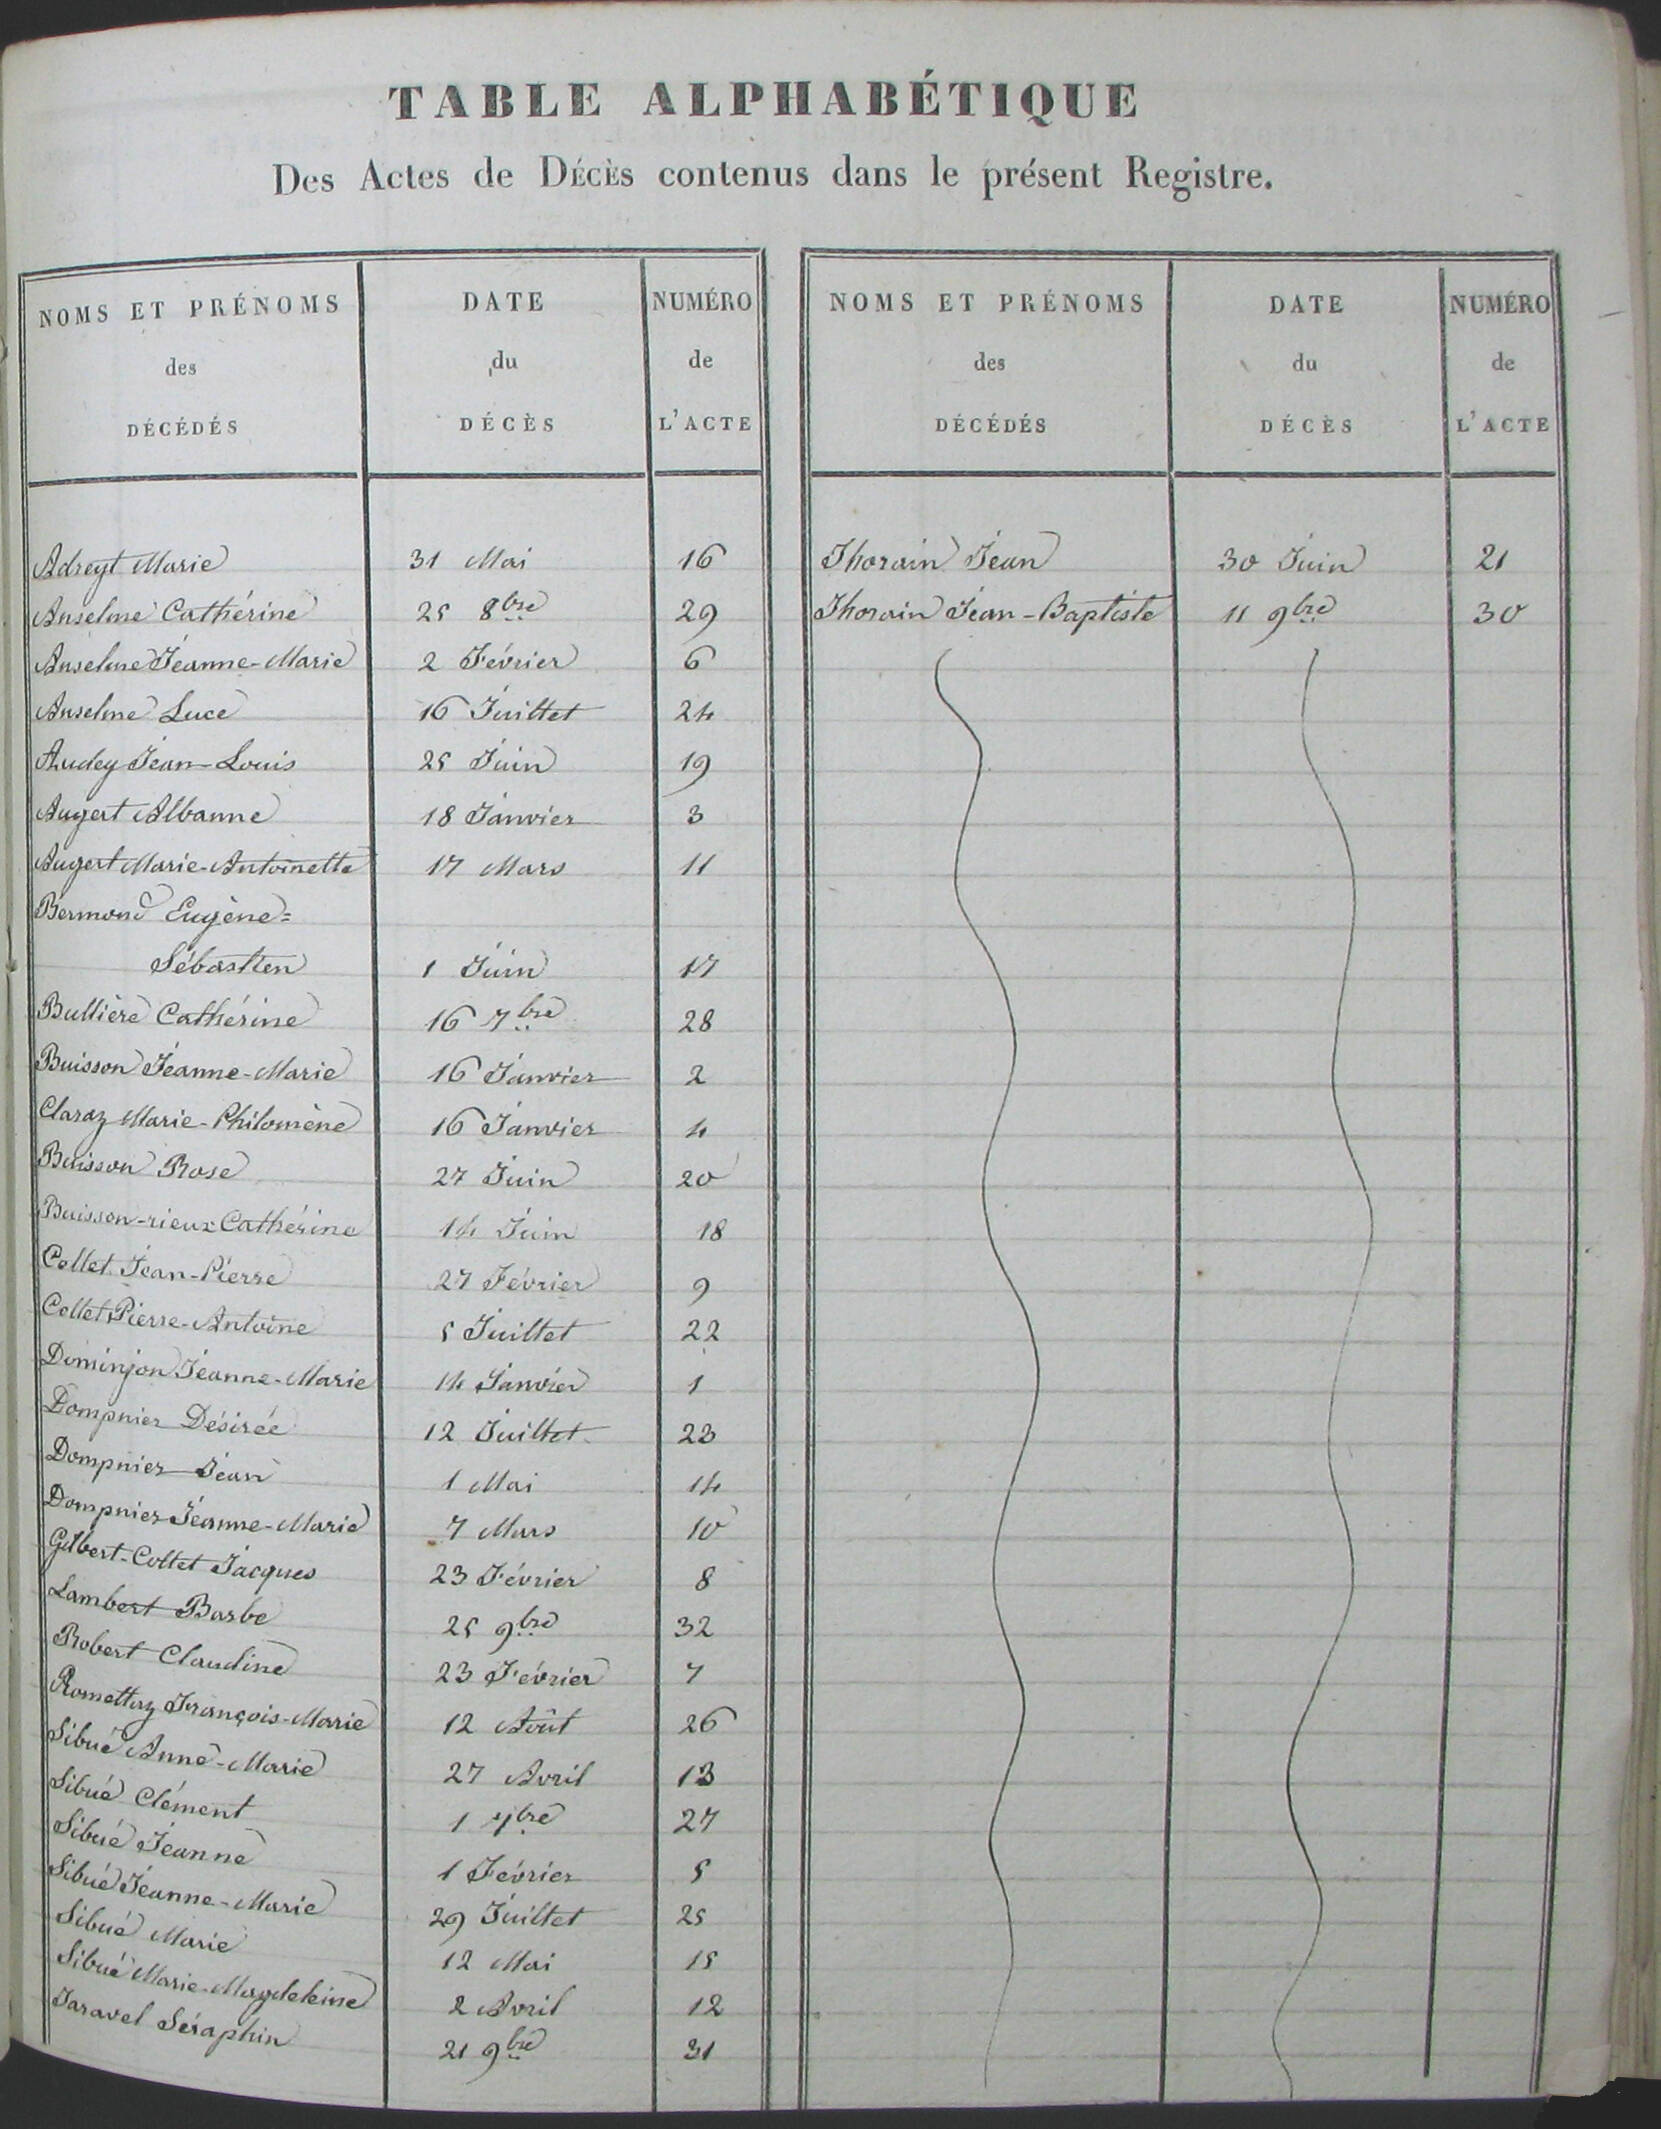 TABLE ALPHABÉTIQUE
Des Actes de DÉCÈS contenus dans le présent Registre.
NOMS ET PRÉNOMS des DÉCÉDÉS DATE du DÉCÈS NUMÉRO de L'ACTE
Adreyt Marie 31 Mai 16
Anselme Cathérine 25 8bre 29
Anselme Jéanne-Marie 2 Février 6
Anselme Luce 16 Juillet 24
Audey Jean-Louis 25 Juin 19
Augert Albanne 18 Janvier 3
Augert Marie-Antoinette 17 Mars 11
Bermond Eugène=
Sébastien 1 Juin 17
Bullière Cathérine 16 7bre 28
Buisson Jéanne-Marie 16 Janvier 2
Claraz Marie-Philomène 16 Janvier 4
Buisson Rose 27 Juin 20
Buisson-rieux Cathérine 14 Juin 18
Collet Jean-Pierre 27 Février 9
Collet Pierre-Antoine 5 Juillet 22
Dominjon Jéanne-Marie 14 Janvier 1
Dompnier Désirée 12 Juillet 23
Dompnier Jéan 1 Mai 14
Dompnier Jéanne-Marie 7 Mars 10
Gilbert-Collet Jacques 23 Février 8
Lambert Barbe 25 9bre 32
Robert Claudine 23 Février 7
Romettaz François-Marie 12 Août 26
Sibué Anne-Marie 27 Avril 13
Sibué Clément 1 7bre 27
Sibué Jéanne 1 Février 5
Sibué Jéanne-Marie 29 Juillet 25
Sibué Marie 12 Mai 15
Sibué Marie-Magdeleine 2 Avril 12
Taravel Séraphin 21 9bre 31
NOMS ET PRÉNOMS des DÉCÉDÉS DATE du DÉCÈS NUMÉRO de L'ACTE
Thorain Jéan 30 Juin 21
Thorain Jéan-Baptiste 11 9bre 30